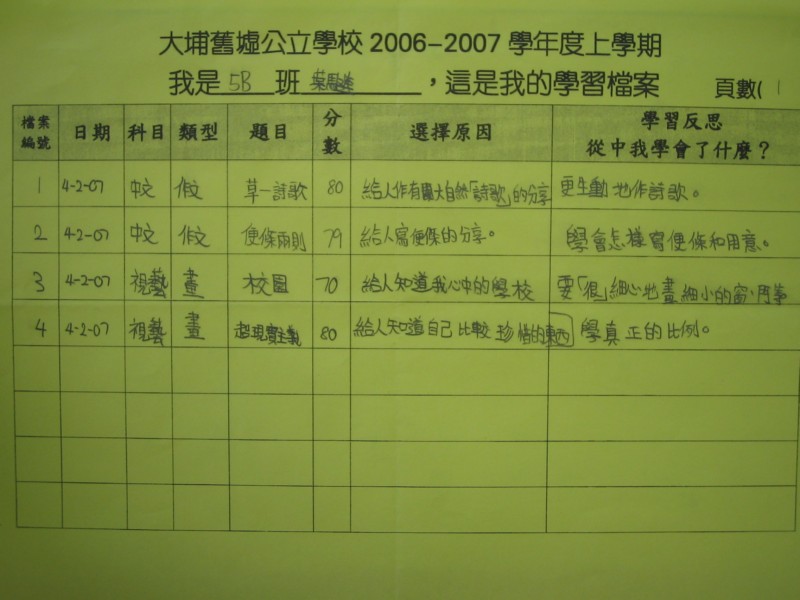 大埔舊墟公立學校 2006-2007 學年度上學期
我是 5B 班 ，這是我的學習檔案 頁數( 1
檔案編號 日期 科目 類型 題目 分數 選擇原因 學習反思 從中我學會了什麼？
1 4-2-07 中文 作文 草—詩歌 80 給人作有關大自然「詩歌」的分享 更生動地作詩歌。
2 4-2-07 中文 作文 便條兩則 79 給人寫便條的分享。 學會怎樣寫便條和用意。
3 4-2-07 視藝 畫 校園 70 給人知道我心中的學校 要「很」細心地畫細小的窗、門等
4 4-2-07 視藝 畫 超現實主義 80 給人知道自己比較珍惜的東西 學真正的比例。